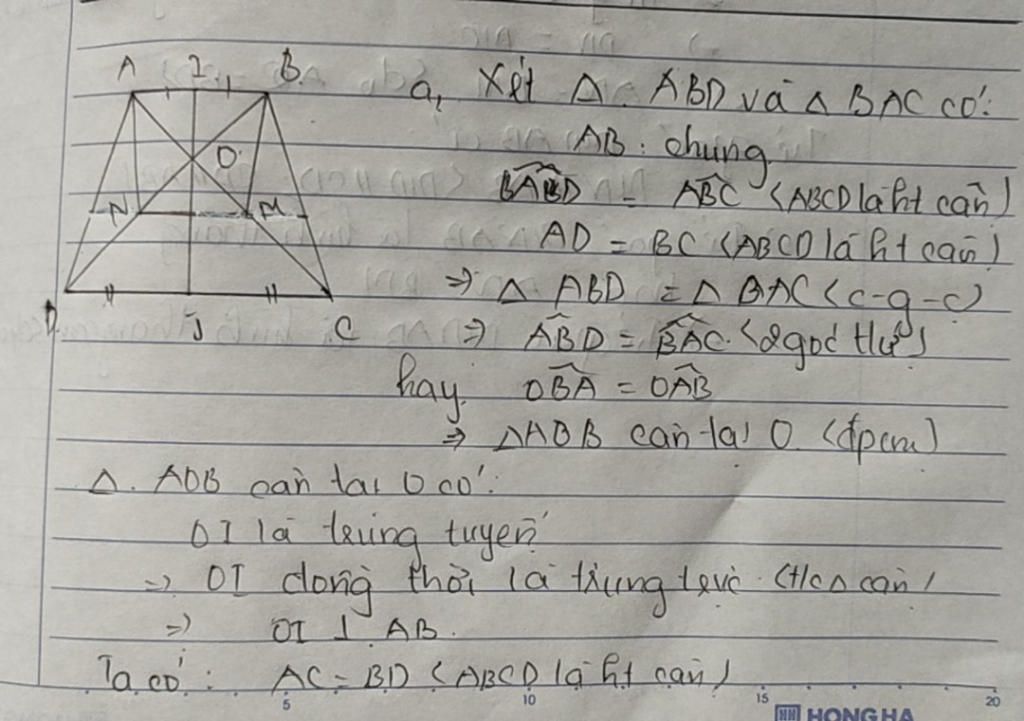 A I B
O
N M
D J C
a, Xét Δ ABD và Δ BAC có:
AB: chung
BAD = ABC (ABCD là ht cân)
AD = BC (ABCD là ht cân)
=> Δ ABD = Δ BAC (c-g-c)
=> ABD = BAC (2 góc t/ư)
hay OBA = OAB
=> ΔAOB cân tại O (đpcm)
Δ AOB cân tại O có:
OI là trung tuyến
=> OI đồng thời là trung trực (t/c Δ cân)
=> OI ⊥ AB.
Ta có: AC = BD (ABCD là ht cân)
5 10 15 20
HONG HA